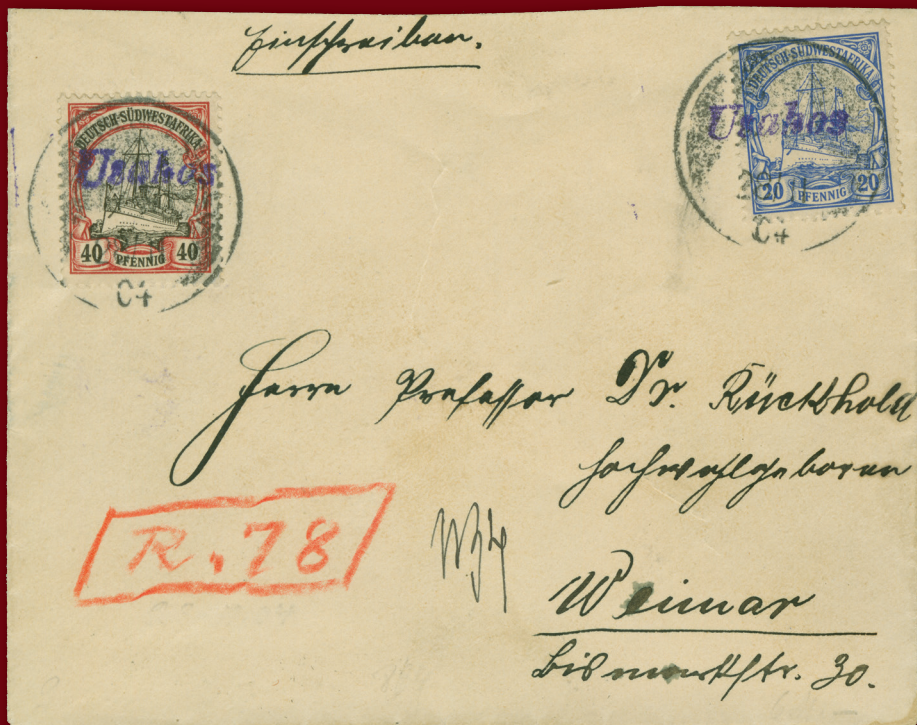 Einschreiben.
DEUTSCH-SÜDWESTAFRIKA
Usakos
40 PFENNIG 40
04
DEUTSCH-SÜDWESTAFRIKA
Usakos
20 PFENNIG 20
04
Herrn Professor Dr. Rückhold
Hochwohlgeboren
R. 78
Weimar
Bismarckstr. 30.